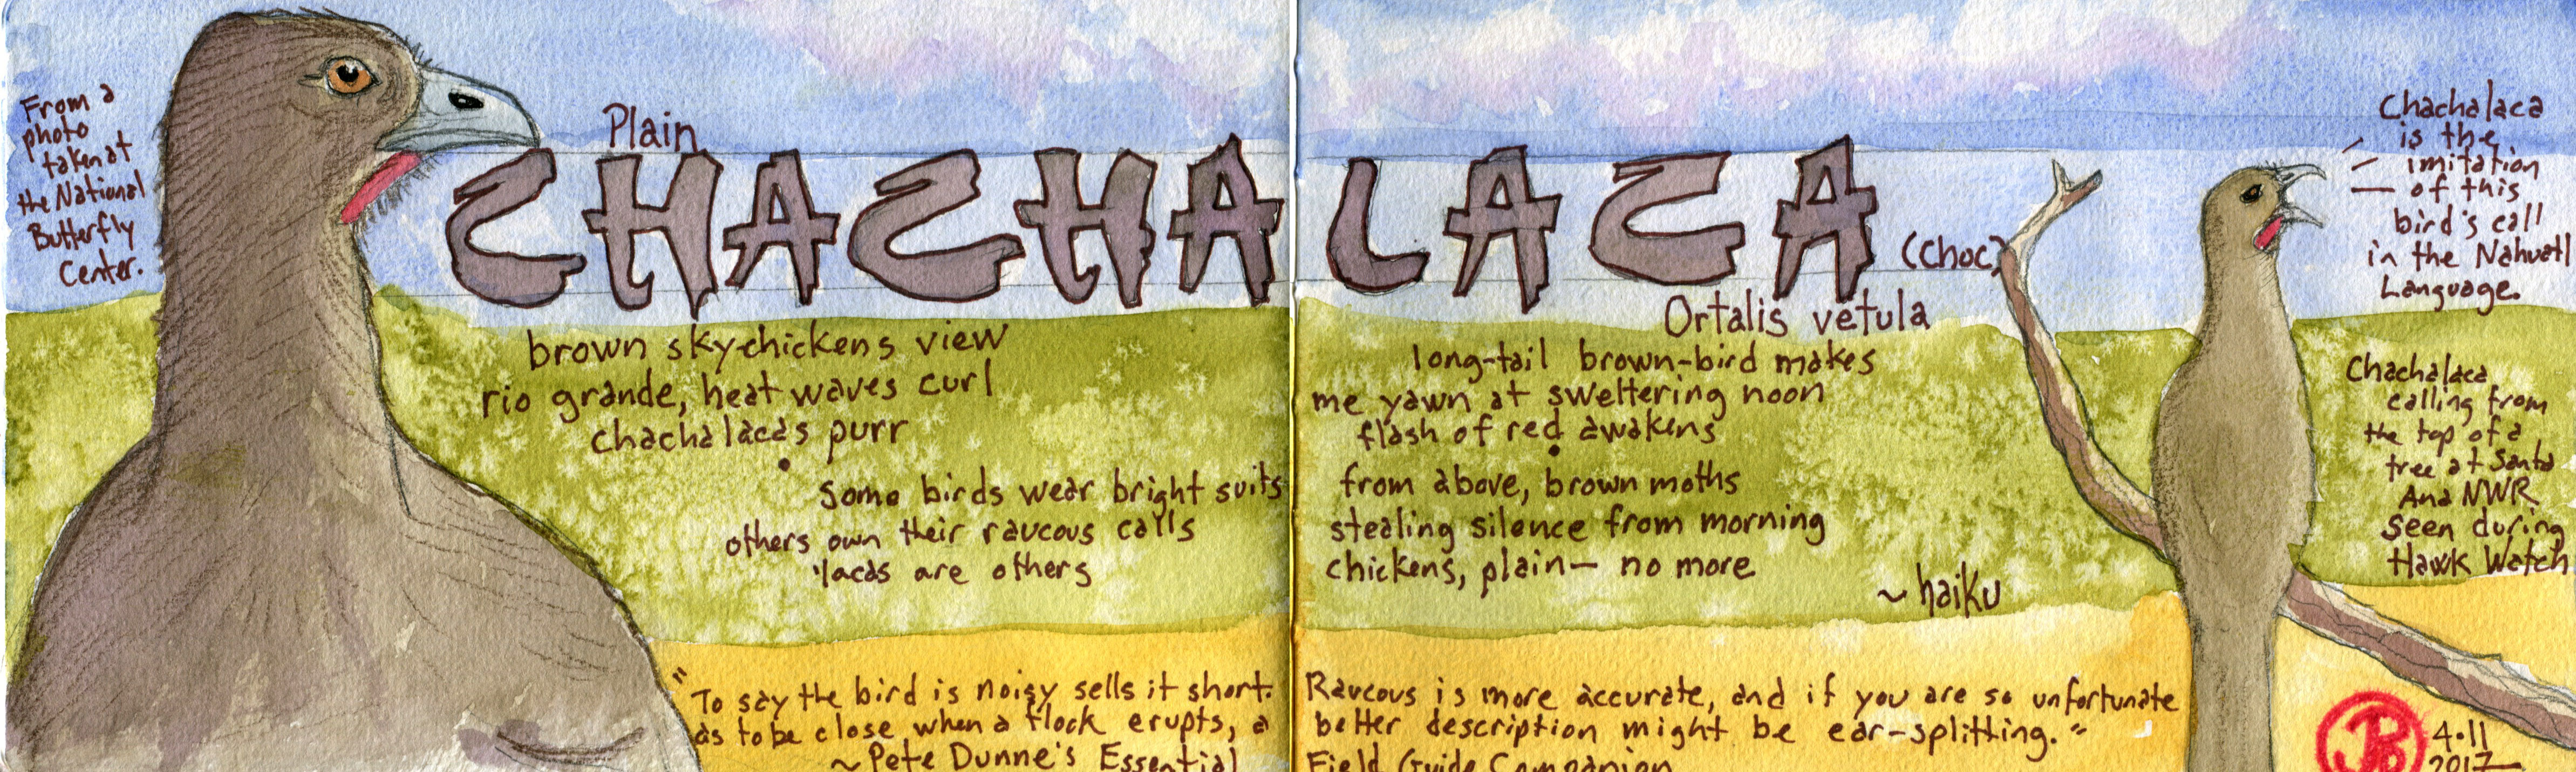 From a
photo
taken at
the National
Butterfly
Center.
Plain
CHACHALACA
(Choc)
Ortalis vetula
brown sky-chickens view
rio grande, heat waves curl
chachalacas purr
some birds wear bright suits
others own their raucous calls
'lacas are others
long-tail brown-bird makes
me yawn at sweltering noon
flash of red awakens
from above, brown moths
stealing silence from morning
chickens, plain— no more
~ haiku
Chachalaca
is the
imitation
of this
bird's call
in the Nahuatl
Language.
Chachalaca
calling from
the top of a
tree at Santa
Ana NWR
seen during
Hawk Watch
"To say the bird is noisy sells it short. Raucous is more accurate, and if you are so unfortunate
as to be close when a flock erupts, a better description might be ear-splitting."
~ Pete Dunne's Essential Field Guide Companion
JPB
4.11
2017